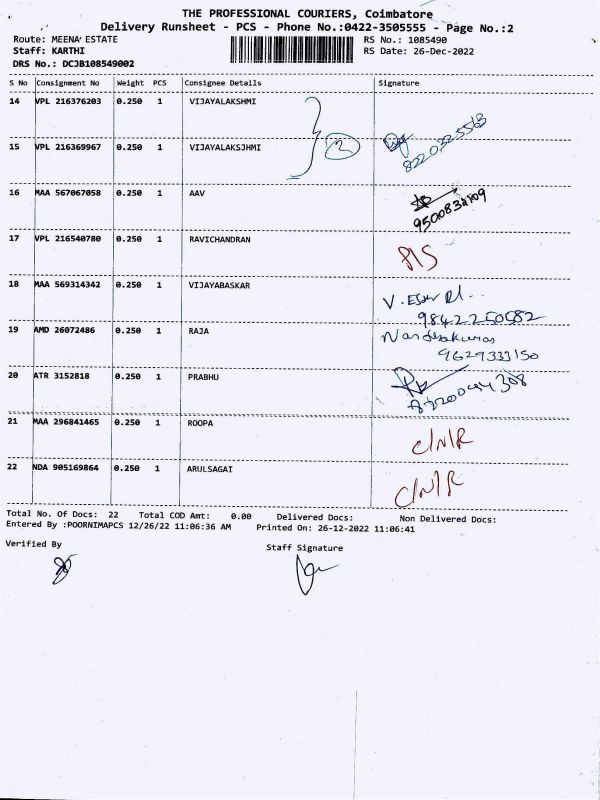 THE PROFESSIONAL COURIERS, Coimbatore
Delivery Runsheet - PCS - Phone No.:0422-3505555 - Page No.:2
Route: MEENA ESTATE RS No.: 1085490
Staff: KARTHI RS Date: 26-Dec-2022
DRS No.: DCJB108549002
S No Consignment No Weight PCS Consignee Details Signature
14 VPL 216376203 0.250 1 VIJAYALAKSHMI
15 VPL 216369967 0.250 1 VIJAYALAKSJHMI 2
16 MAA 567067058 0.250 1 AAV
17 VPL 216540780 0.250 1 RAVICHANDRAN P/S
18 MAA 569314342 0.250 1 VIJAYABASKAR
19 AMD 26072486 0.250 1 RAJA
9629333150
20 ATR 3152818 0.250 1 PRABHU
21 MAA 296841465 0.250 1 ROOPA C/N/R
22 NDA 905169864 0.250 1 ARULSAGAI C/N/R
Total No. Of Docs: 22 Total COD Amt: 0.00 Delivered Docs: Non Delivered Docs:
Entered By :POORNIMAPCS 12/26/22 11:06:36 AM Printed On: 26-12-2022 11:06:41
Verified By Staff Signature